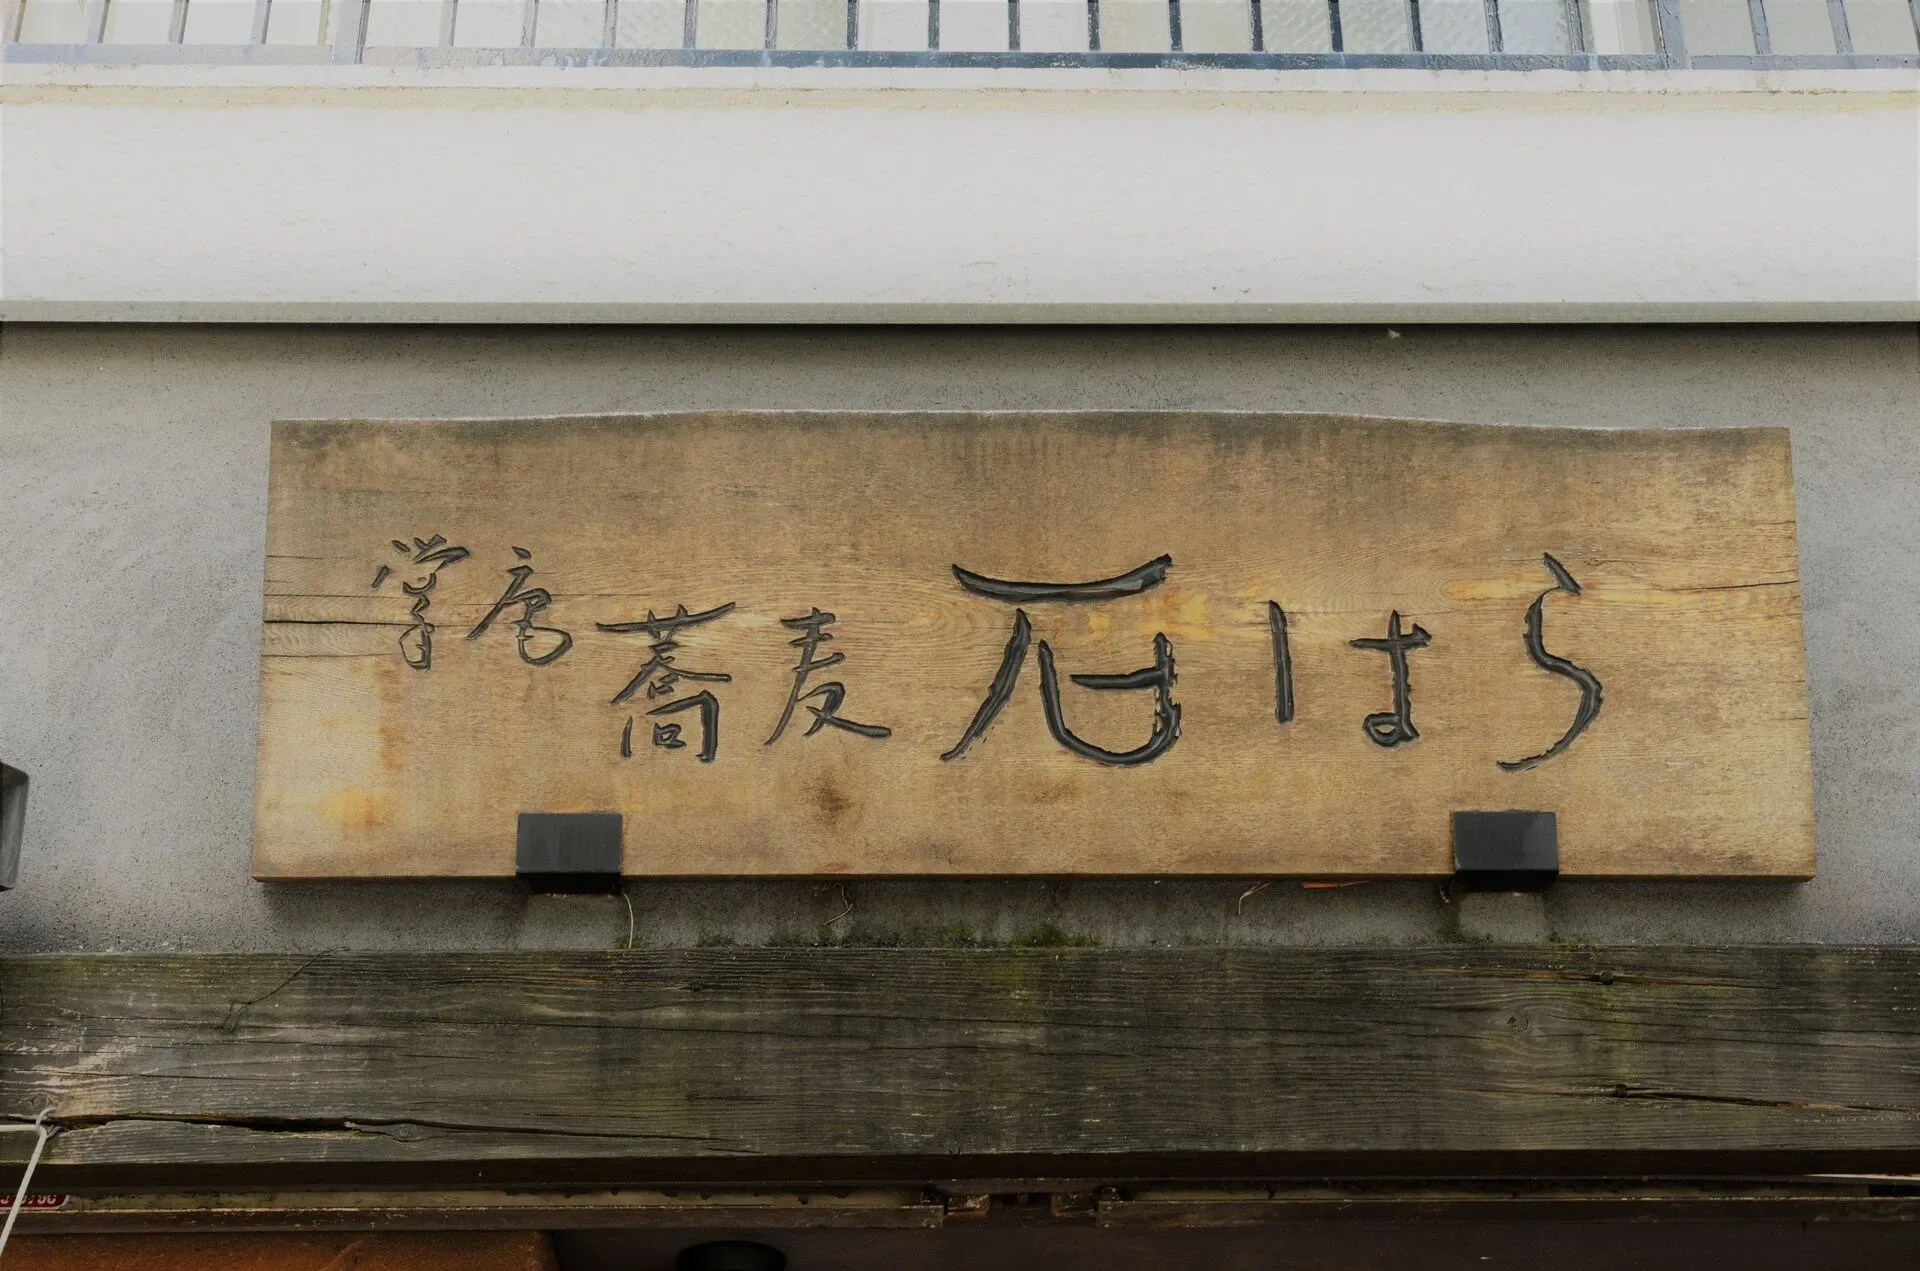 掌庵 蕎麦 石はら